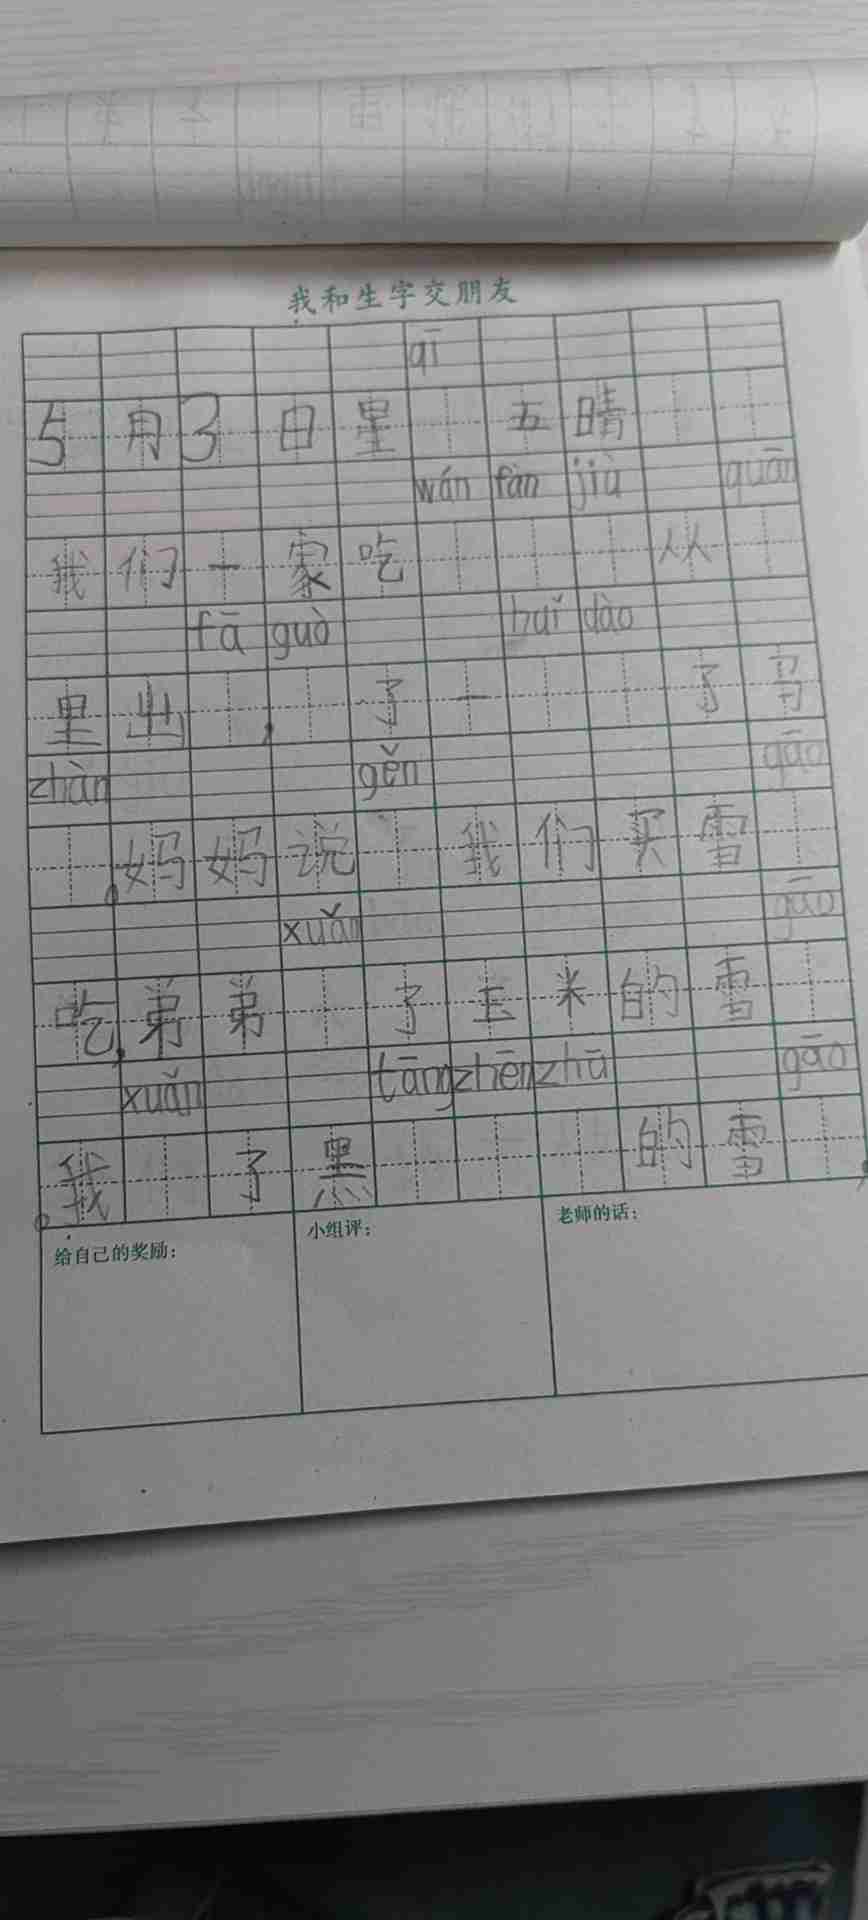 我和生字交朋友
qī
5月3日星 五晴
wán fàn jiù quān
我们一家吃 从
fā guò huǐ dào
里出 , 了一 了马
zhàn gěn gāo
。妈妈说 我们买雪
xuǎn gāo
吃,弟弟 了玉米的雪
xuǎn tāng zhēn zhū gāo
。我 了黑 的雪 ,
给自己的奖励:
小组评:
老师的话: